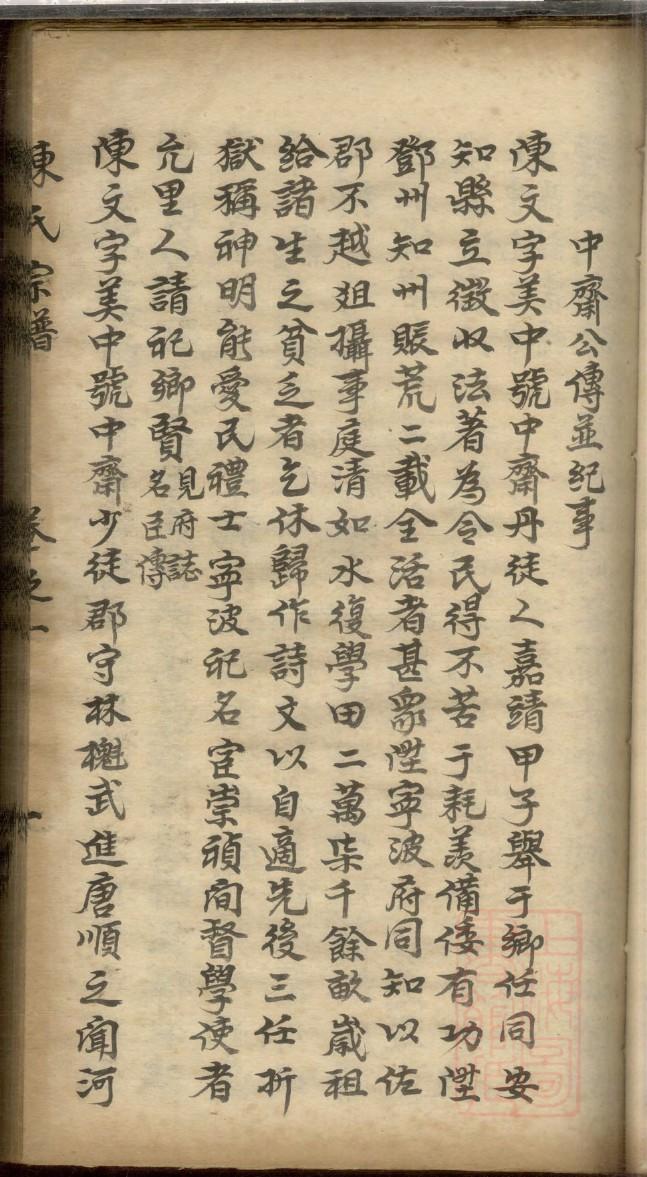 中齋公傳並紀事
陳文字美中號中齋丹徒人嘉靖甲子舉于鄉任同安
知縣立徵收法著為令民得不苦于耗羨備倭有功陞
鄧州知州賬荒二載全活者甚衆陞寧波府同知以佐
郡不越俎攝事庭清如水復學田二萬柒千餘畝歲租
給諸生之貧乏者乞休歸作詩文以自適先後三任折
獄稱神明能愛民禮士寧波祀名宦崇禎間督學使者
允里人請祀鄉賢見府誌名臣傳
陳文字美中號中齋少從郡守林櫆武進唐順之聞河
陳氏宗譜 卷之一 一